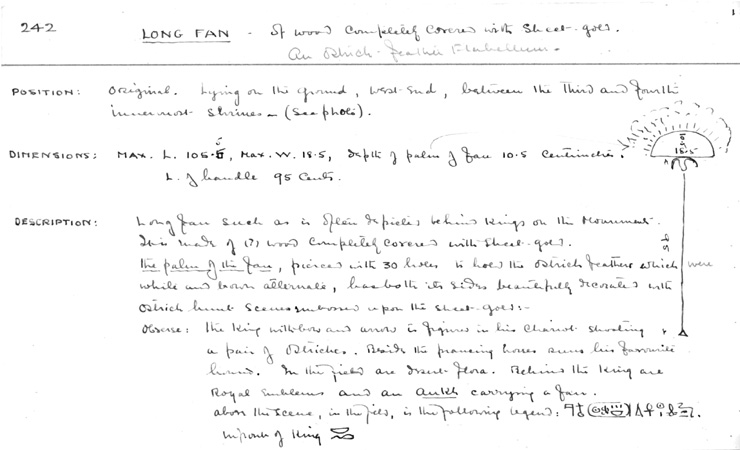 242
LONG FAN - Of wood completely covered with sheet-gold.
An Ostrich-feather Flabellum.
POSITION: Original. Lying on the ground, west-end, between the third and fourth
innermost shrines - (see photo).
DIMENSIONS: MAX. L. 105.5, MAX. W. 18.5, depth of palm of fan 10.5 centimetres.
L. of handle 95 cents.
10.5
18.5
95
DESCRIPTION: Long fan such as is often depicted behind Kings on the Monuments.
It is made of (?) wood completely covered with sheet-gold.
The palm of the fan, pierced with 30 holes to hold the ostrich feathers which were
white and brown alternate, has both its sides beautifully decorated with
Ostrich hunt scenes embossed upon the sheet-gold:-
Obverse: The King with bow and arrow is figured in his chariot shooting
a pair of Ostriches. Beside the prancing horses runs his favourite
hound. In the field are desert flora. Behind the King are
Royal Emblems and an ankh carrying a fan.
above the scene, in the field, is the following legend:
In front of King